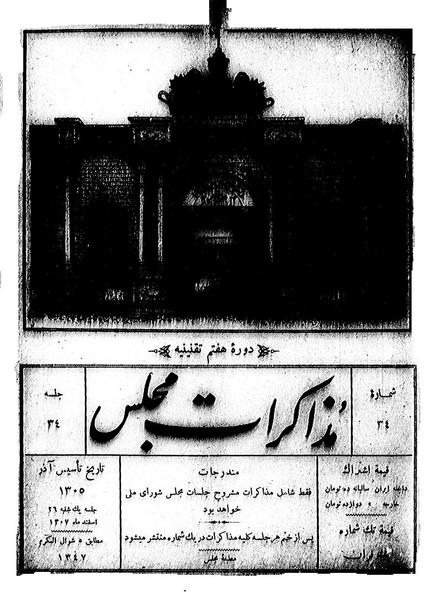 دورهٔ هفتم تقنینیه
شماره
۳۴
مذاکرات مجلس
جلسه
۳۴
قیمة اشتراك
داخله ایران سالیانه ده تومان
خارجه » دوازده تومان
قیمة تك شماره
یك قران
مندرجات
فقط شامل مذاکرات مشروح جلسات مجلس شورای ملی
خواهد بود
پس از ختم هر جلسه کلیه مذاکرات در یك شماره منتشر میشود
مطبعهٔ مجلس
تاریخ تأسیس آذر
۱۳۰۵
جلسه یك شنبه ۲۶
اسفند ماه ۱۳۰۷
مطابق ۵ شوال المکرم
۱۳۴۷